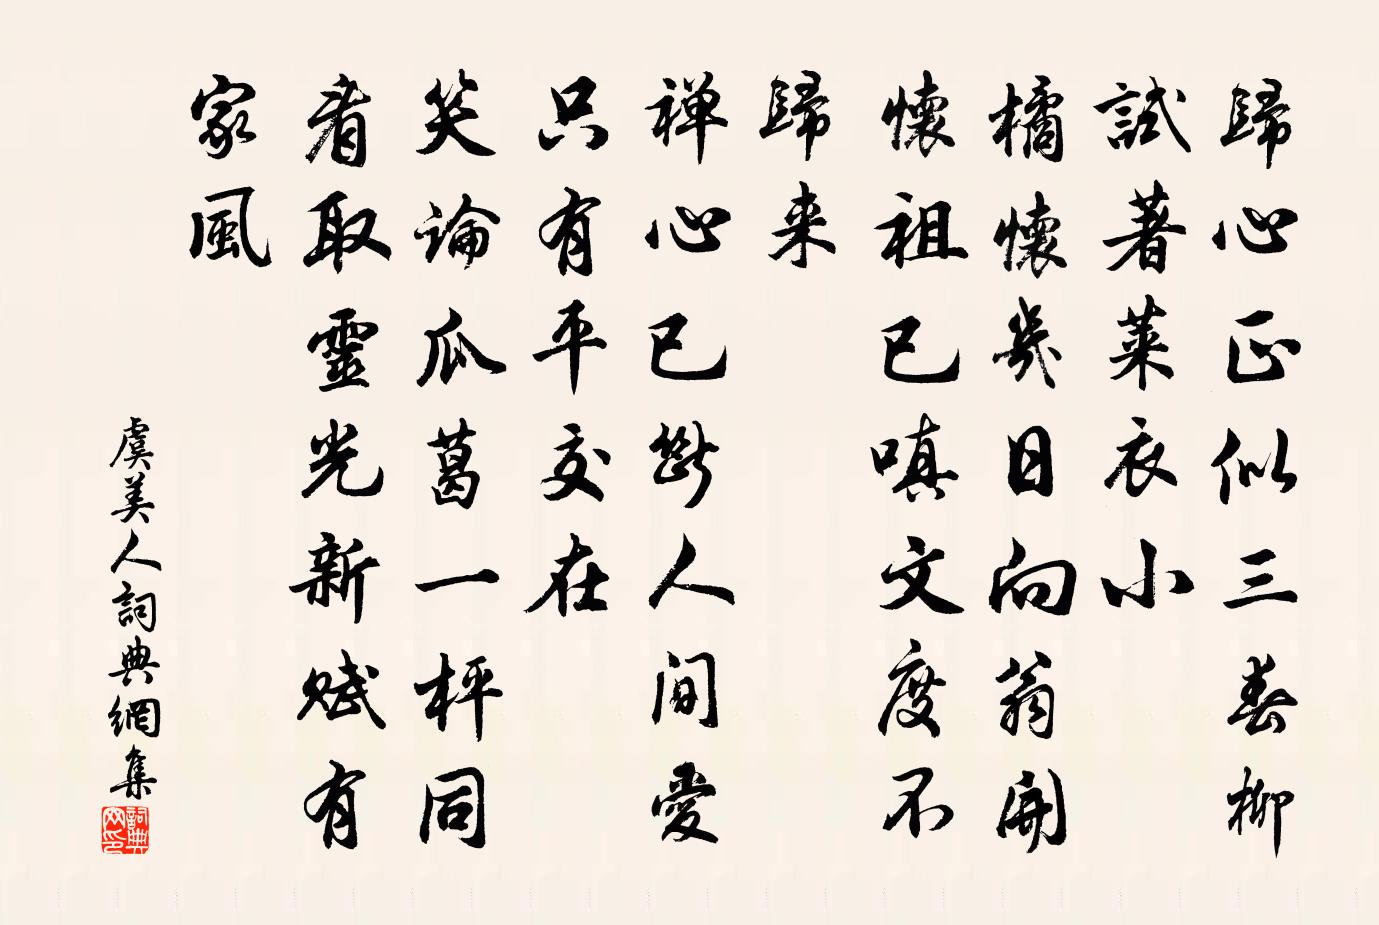 歸心正似三春柳
試著萊衣小
橘懷幾日向翁開
懷祖已嗔文度不
歸来
禅心已斷人間愛
只有平交在
笑論瓜葛一枰同
看取靈光新賦有
家風
虞美人詞典網集
詞典
网印